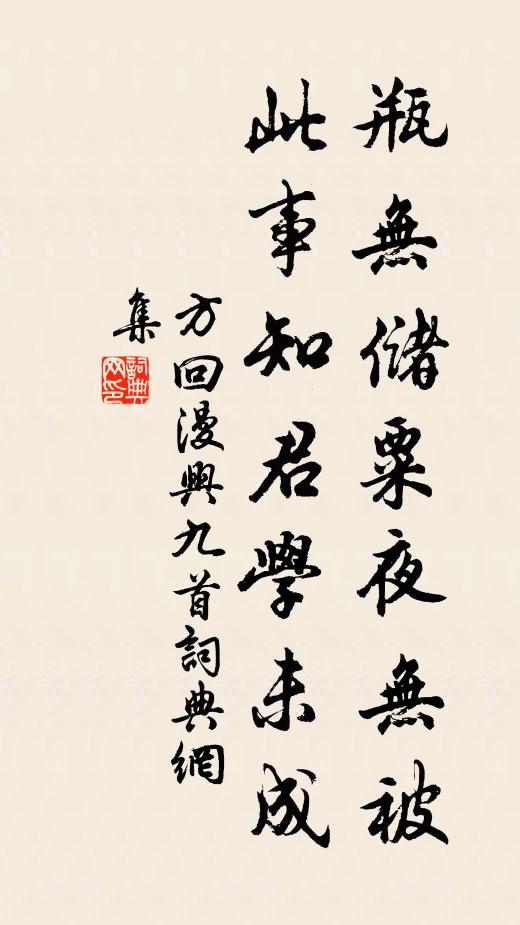 瓶無儲粟夜無被
此事知君學未成
方回漫興九首詞典網
集
詞典
网印